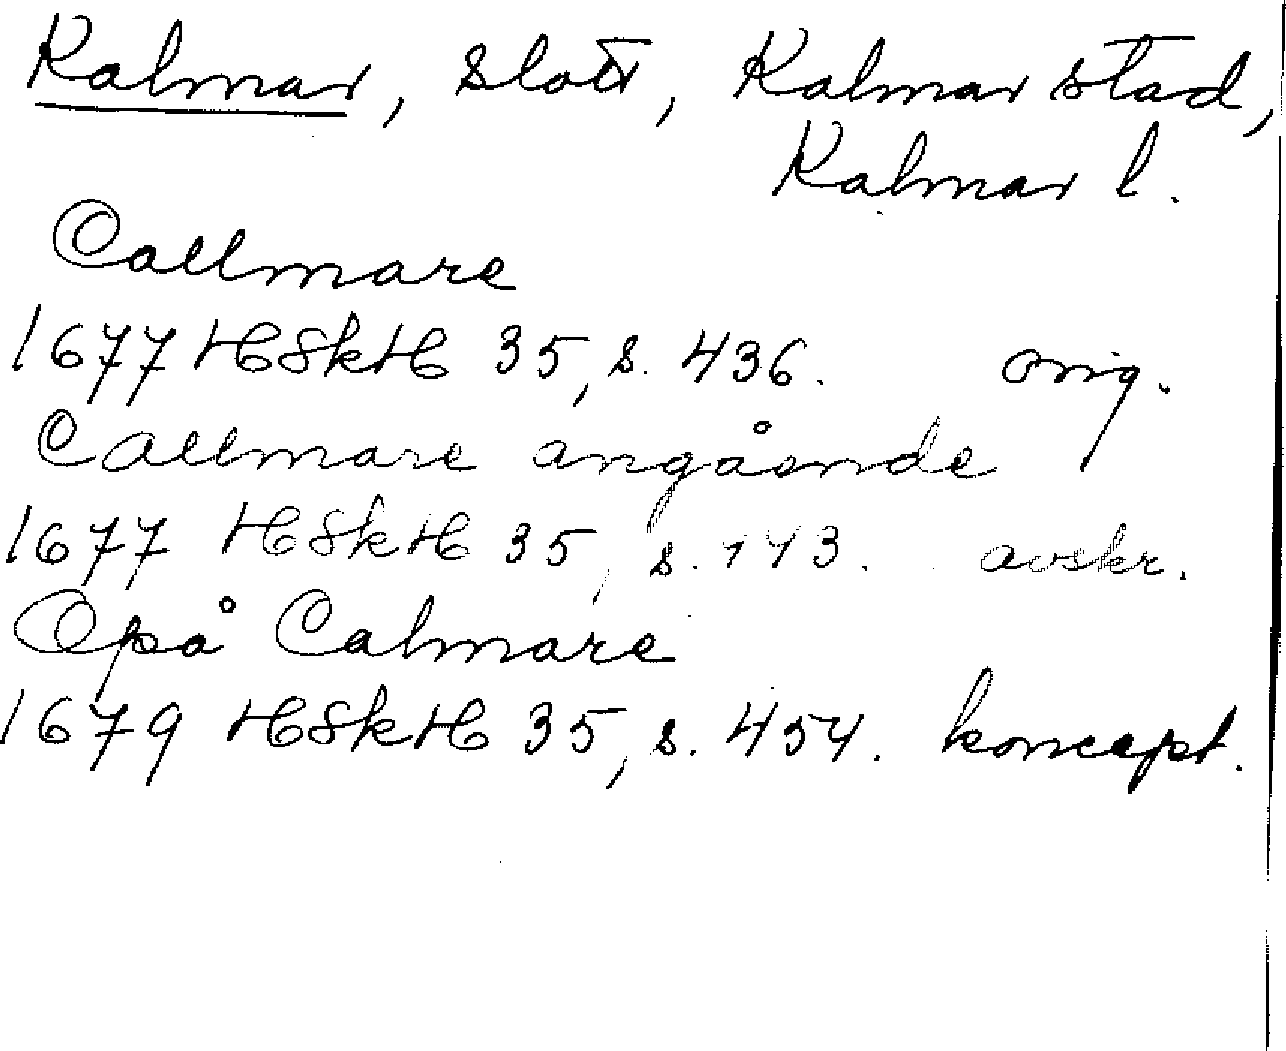 Kalmar, slott, Kalmar stad,
Kalmar l.
Callmare
1677 HSkH 35, s. 436. orig.
Callmare angående
1677 HSkH 35, s. 143. avskr.
Opå Calmare
1679 HSkH 35, s. 454. koncept.